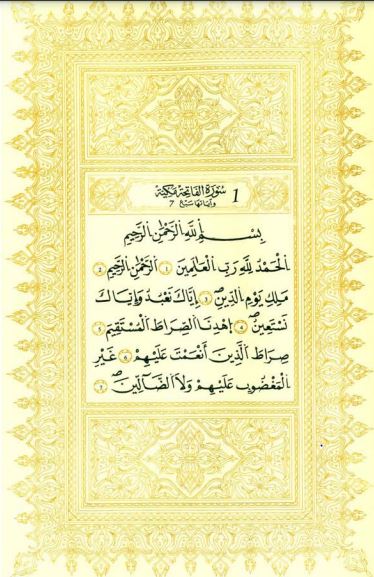 1 سورة الفاتحة مكية
وآياتها سبع 7
بِسْمِ اللَّهِ الرَّحْمَٰنِ الرَّحِيمِ
الْحَمْدُ لِلَّهِ رَبِّ الْعَالَمِينَ ١ الرَّحْمَٰنِ الرَّحِيمِ ٢
مَلِكِ يَوْمِ الدِّينِ ٣ إِيَّاكَ نَعْبُدُ وَإِيَّاكَ
نَسْتَعِينُ ٤ اهْدِنَا الصِّرَاطَ الْمُسْتَقِيمَ ٥
صِرَاطَ الَّذِينَ أَنْعَمْتَ عَلَيْهِمْ ٦ غَيْرِ
الْمَغْضُوبِ عَلَيْهِمْ وَلَا الضَّالِّينَ ٧